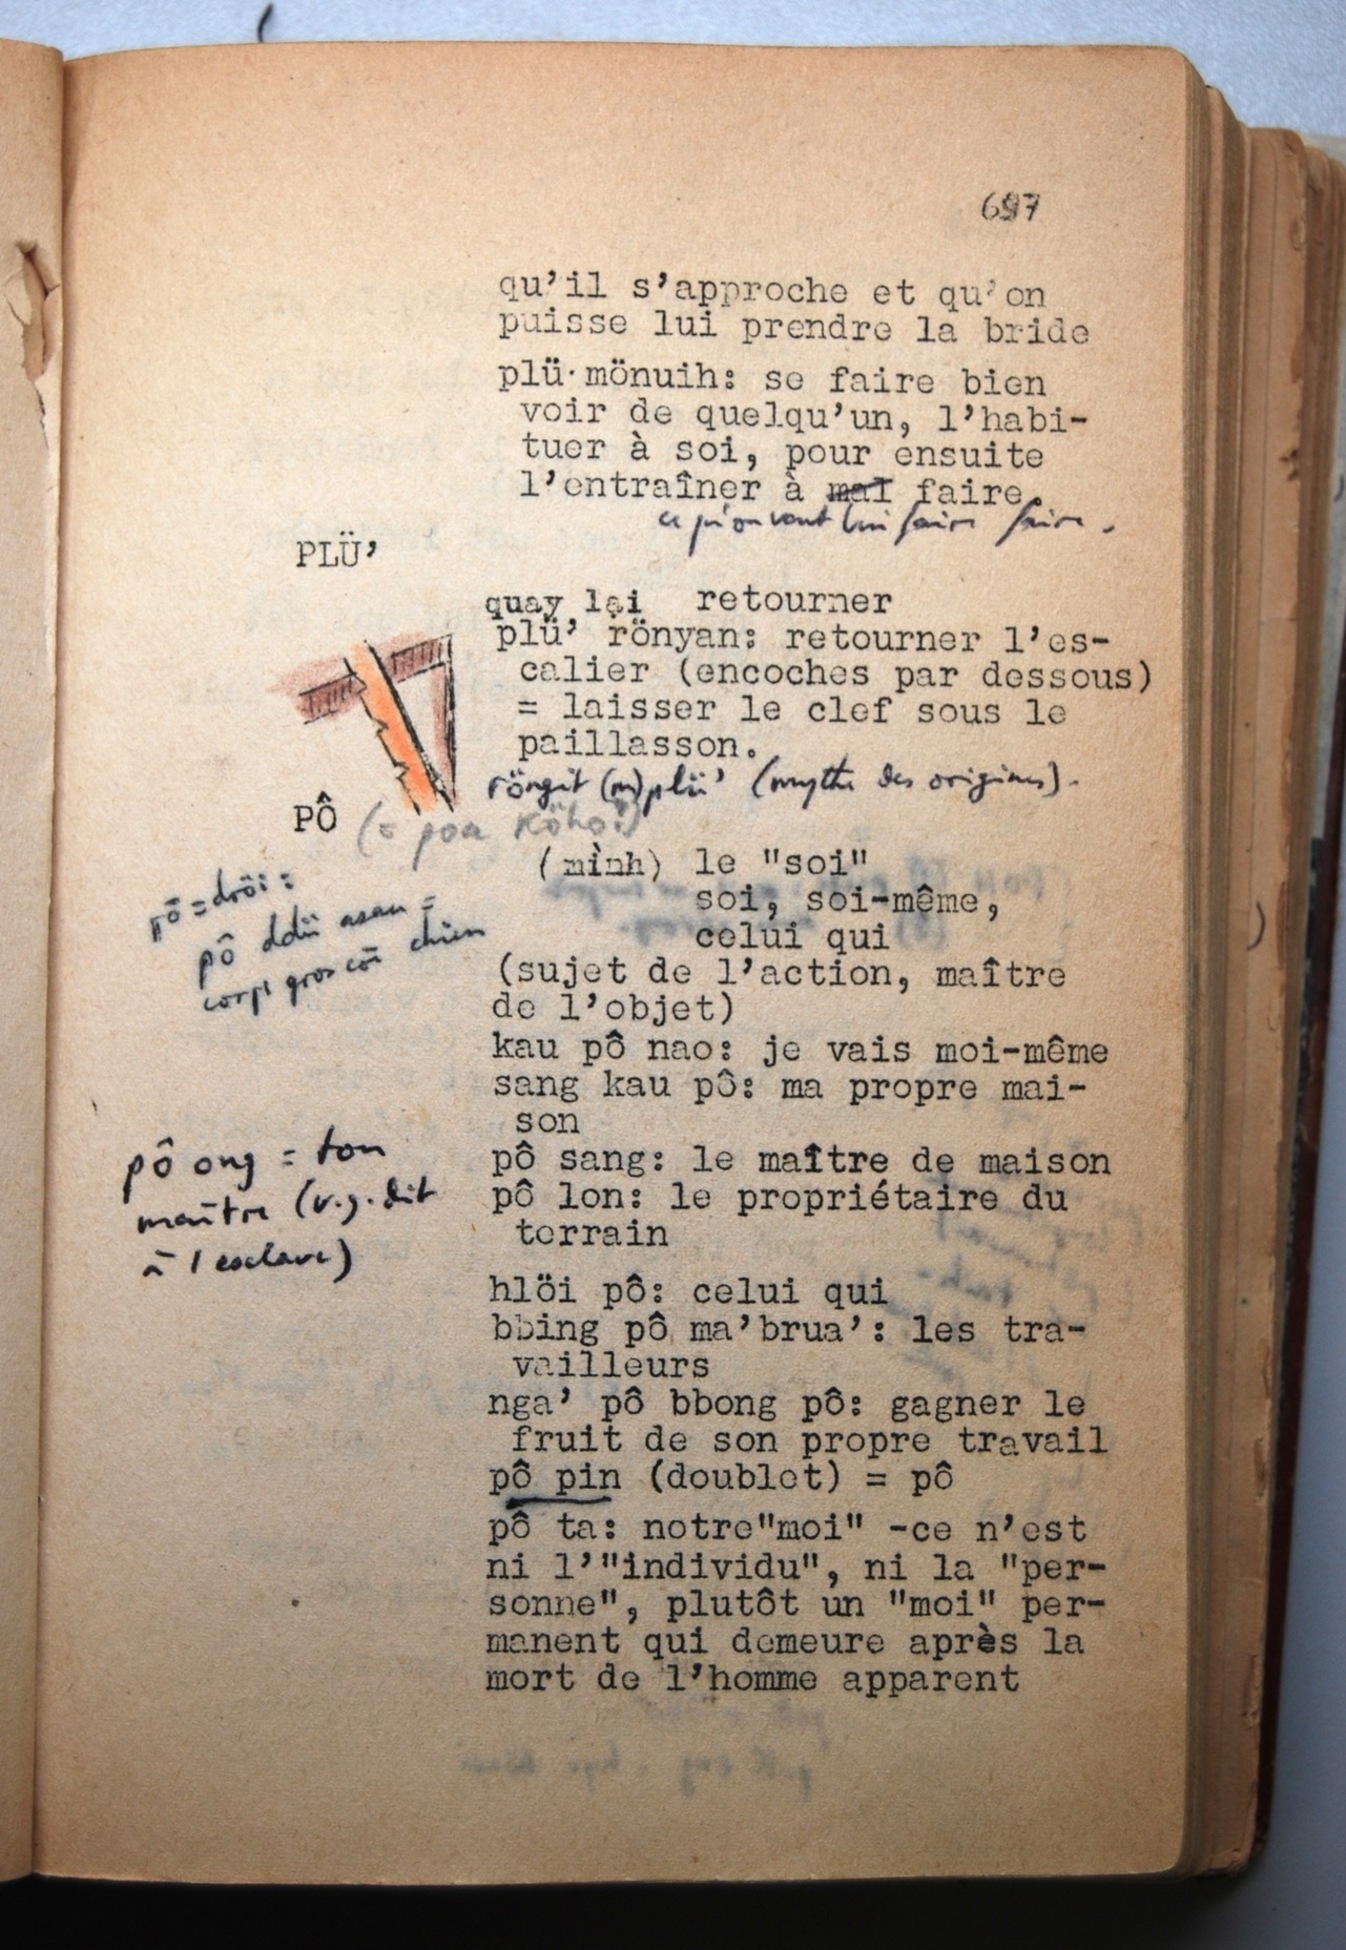 697
qu’il s’approche et qu’on
puisse lui prendre la bride
plü·mönuih: se faire bien
voir de quelqu’un, l’habi-
tuer à soi, pour ensuite
l’entraîner à mal faire.
ce qu'on veut lui faire faire.
PLÜ’
quay lại retourner
plü’ rönyan: retourner l’es-
calier (encoches par dessous)
= laisser le clef sous le
paillasson.
röngit (m)plü’ (mythe des origines).
PÔ (= poa Köhoi)
(mình) le "soi"
soi, soi-même,
celui qui
(sujet de l’action, maître
de l’objet)
pô = dröi :
pô ddü asau =
corps gros chien
kau pô nao: je vais moi-même
sang kau pô: ma propre mai-
son
pô sang: le maître de maison
pô lon: le propriétaire du
terrain
pô ong = ton
maître (v.g. dit
à l'esclave)
hlöi pô: celui qui
bbing pô ma’brua’: les tra-
vailleurs
nga’ pô bbong pô: gagner le
fruit de son propre travail
pô pin (doublet) = pô
pô ta: notre"moi" -ce n’est
ni l’"individu", ni la "per-
sonne", plutôt un "moi" per-
manent qui demeure après la
mort de l’homme apparent